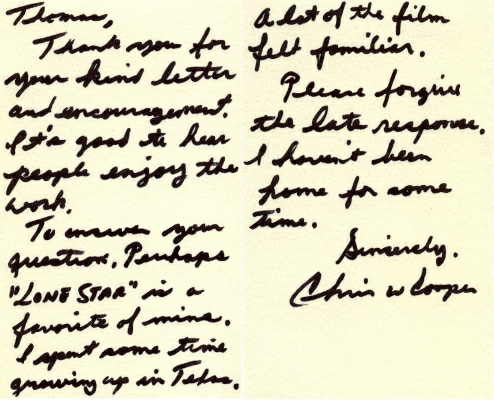 Thomas,
Thank you for
your kind letter
and encouragement.
It's good to hear
people enjoy the
work.
To answer your
question. Perhaps
"LONE STAR" is a
favorite of mine.
I spent some time
growing up in Texas.
A lot of the film
felt familiar.
Please forgive
the late response.
I haven't been
home for some
time.
Sincerely.
Chris W Cooper